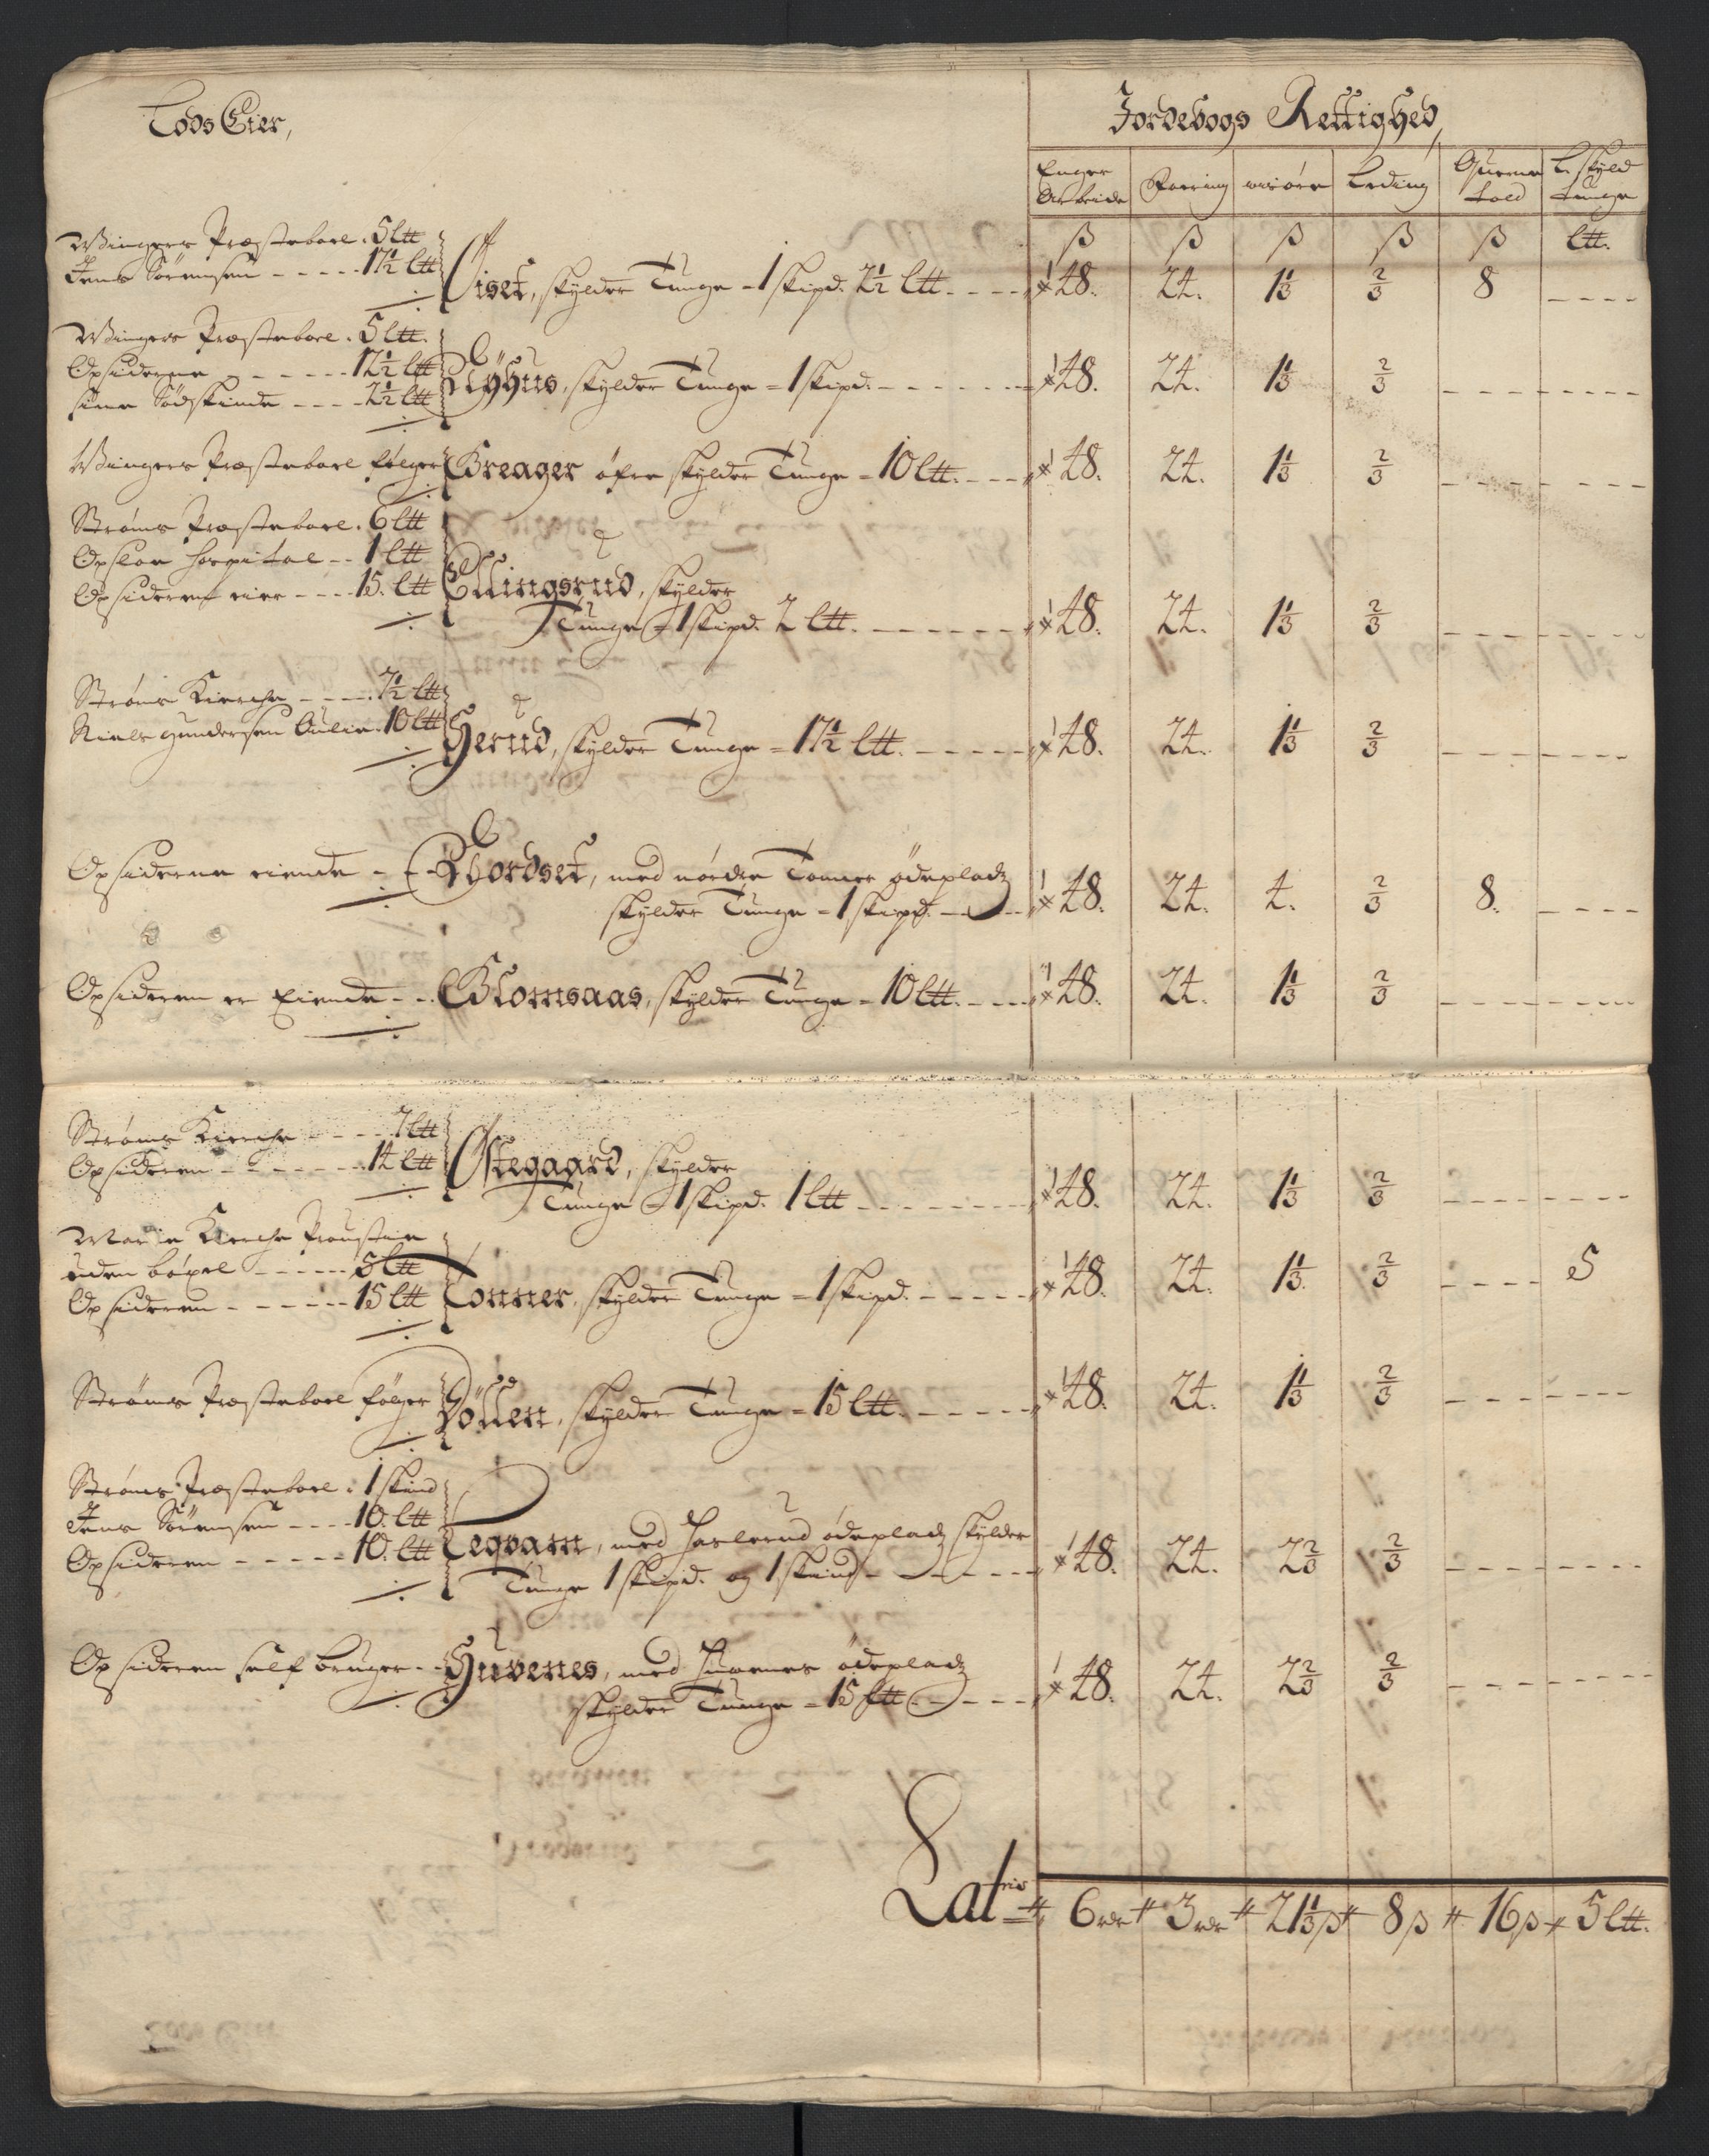 Lods Eier,
Jordebogs Rettighed,
Enges Arbeide | Foering | wisöre | Leding | Querne told | L. skyld tunge
ß | ß | ß | ß | ß | Ltt.
Wingers Præstebore . 5 Ltt
Jens Sörensen - - - - - 17½ Ltt
Liset, skylder Tunge = 1 skipd. 2½ Ltt. - - - 48. 24. 1⅓ ⅔ 8 - - - -
Wingers Præstebore . 5 Ltt.
Opsiderne - - - - - 12½ Ltt
sine Södskinde - - - - 2½ Ltt
Ryhus, skylder Tunge = 1 skipd. - - - - - - - 48. 24. 1⅓ ⅔ - - - - - - - -
Wingers Præstebore fölger
Greager öfre skylder Tunge = 10 Ltt. - - - 48. 24. 1⅓ ⅔ - - - - - - - -
Ströms Præstebore . 6 Ltt
Opslon Hospital - - 1 Ltt
Opsideren eier - - - 15. Ltt
Ellingsrud, skylder
Tunge = 1 skipd. 2 Ltt. - - - - - - 48. 24. 1⅓ ⅔ - - - - - - - -
Ströms Kierche - - - - 7½ Ltt
Niels Gundersen Aulie . 10 Ltt
Gerud, skylder Tunge = 17½ Ltt. - - - - - 48. 24. 1⅓ ⅔ - - - - - - - -
Opsiderne eiende - -
Nordset, med nordre Tonner ödepladz
skylder Tunge = 1 skipd. - - - 48. 24. 4. ⅔ 8. - - - -
Opsideren er Eiende - -
Glomsaas, skylder Tunge = 10 Ltt. - - - 48. 24. 1⅓ ⅔ - - - - - - - -
Ströms Kierche - - - - 7 Ltt
Opsideren - - - - - - 14 Ltt
Östegaard, skylder
Tunge = 1 skipd. 1 Ltt - - - - - - - - 48. 24. 1⅓ ⅔ - - - - - - - -
Marie Kierche Proustie
uden böxel - - - - - 5 Ltt
Opsideren - - - - - - 15 Ltt
Tonner, skylder Tunge = 1 skipd. - - - - - 48. 24. 1⅓. ⅔ - - - - 5
Ströms Præstebore fölger
Döllen, skylder Tunge = 15 Ltt. - - - - - 48. 24. 1⅓ ⅔ - - - - - - - -
Ströms Præstebore . 1 skind
Jens Sörensen - - - - 10. Ltt
Opsideren - - - - - 10. Ltt
Legvam, med Haslerud ödepladz skylder
Tunge 1 skipd. og 1 skind - - - - - - 48. 24. 2⅔ ⅔ - - - - - - - -
Opsideren self bruger - -
Huvenes, med Huvenes ödepladz
skylder Tunge = 15 Ltt - - - - - 48. 24. 2⅔ ⅔ - - - - - - - -
Latris 6 rdr 3 rdr 21⅓ ß 8 ß 16 ß 5 Ltt.